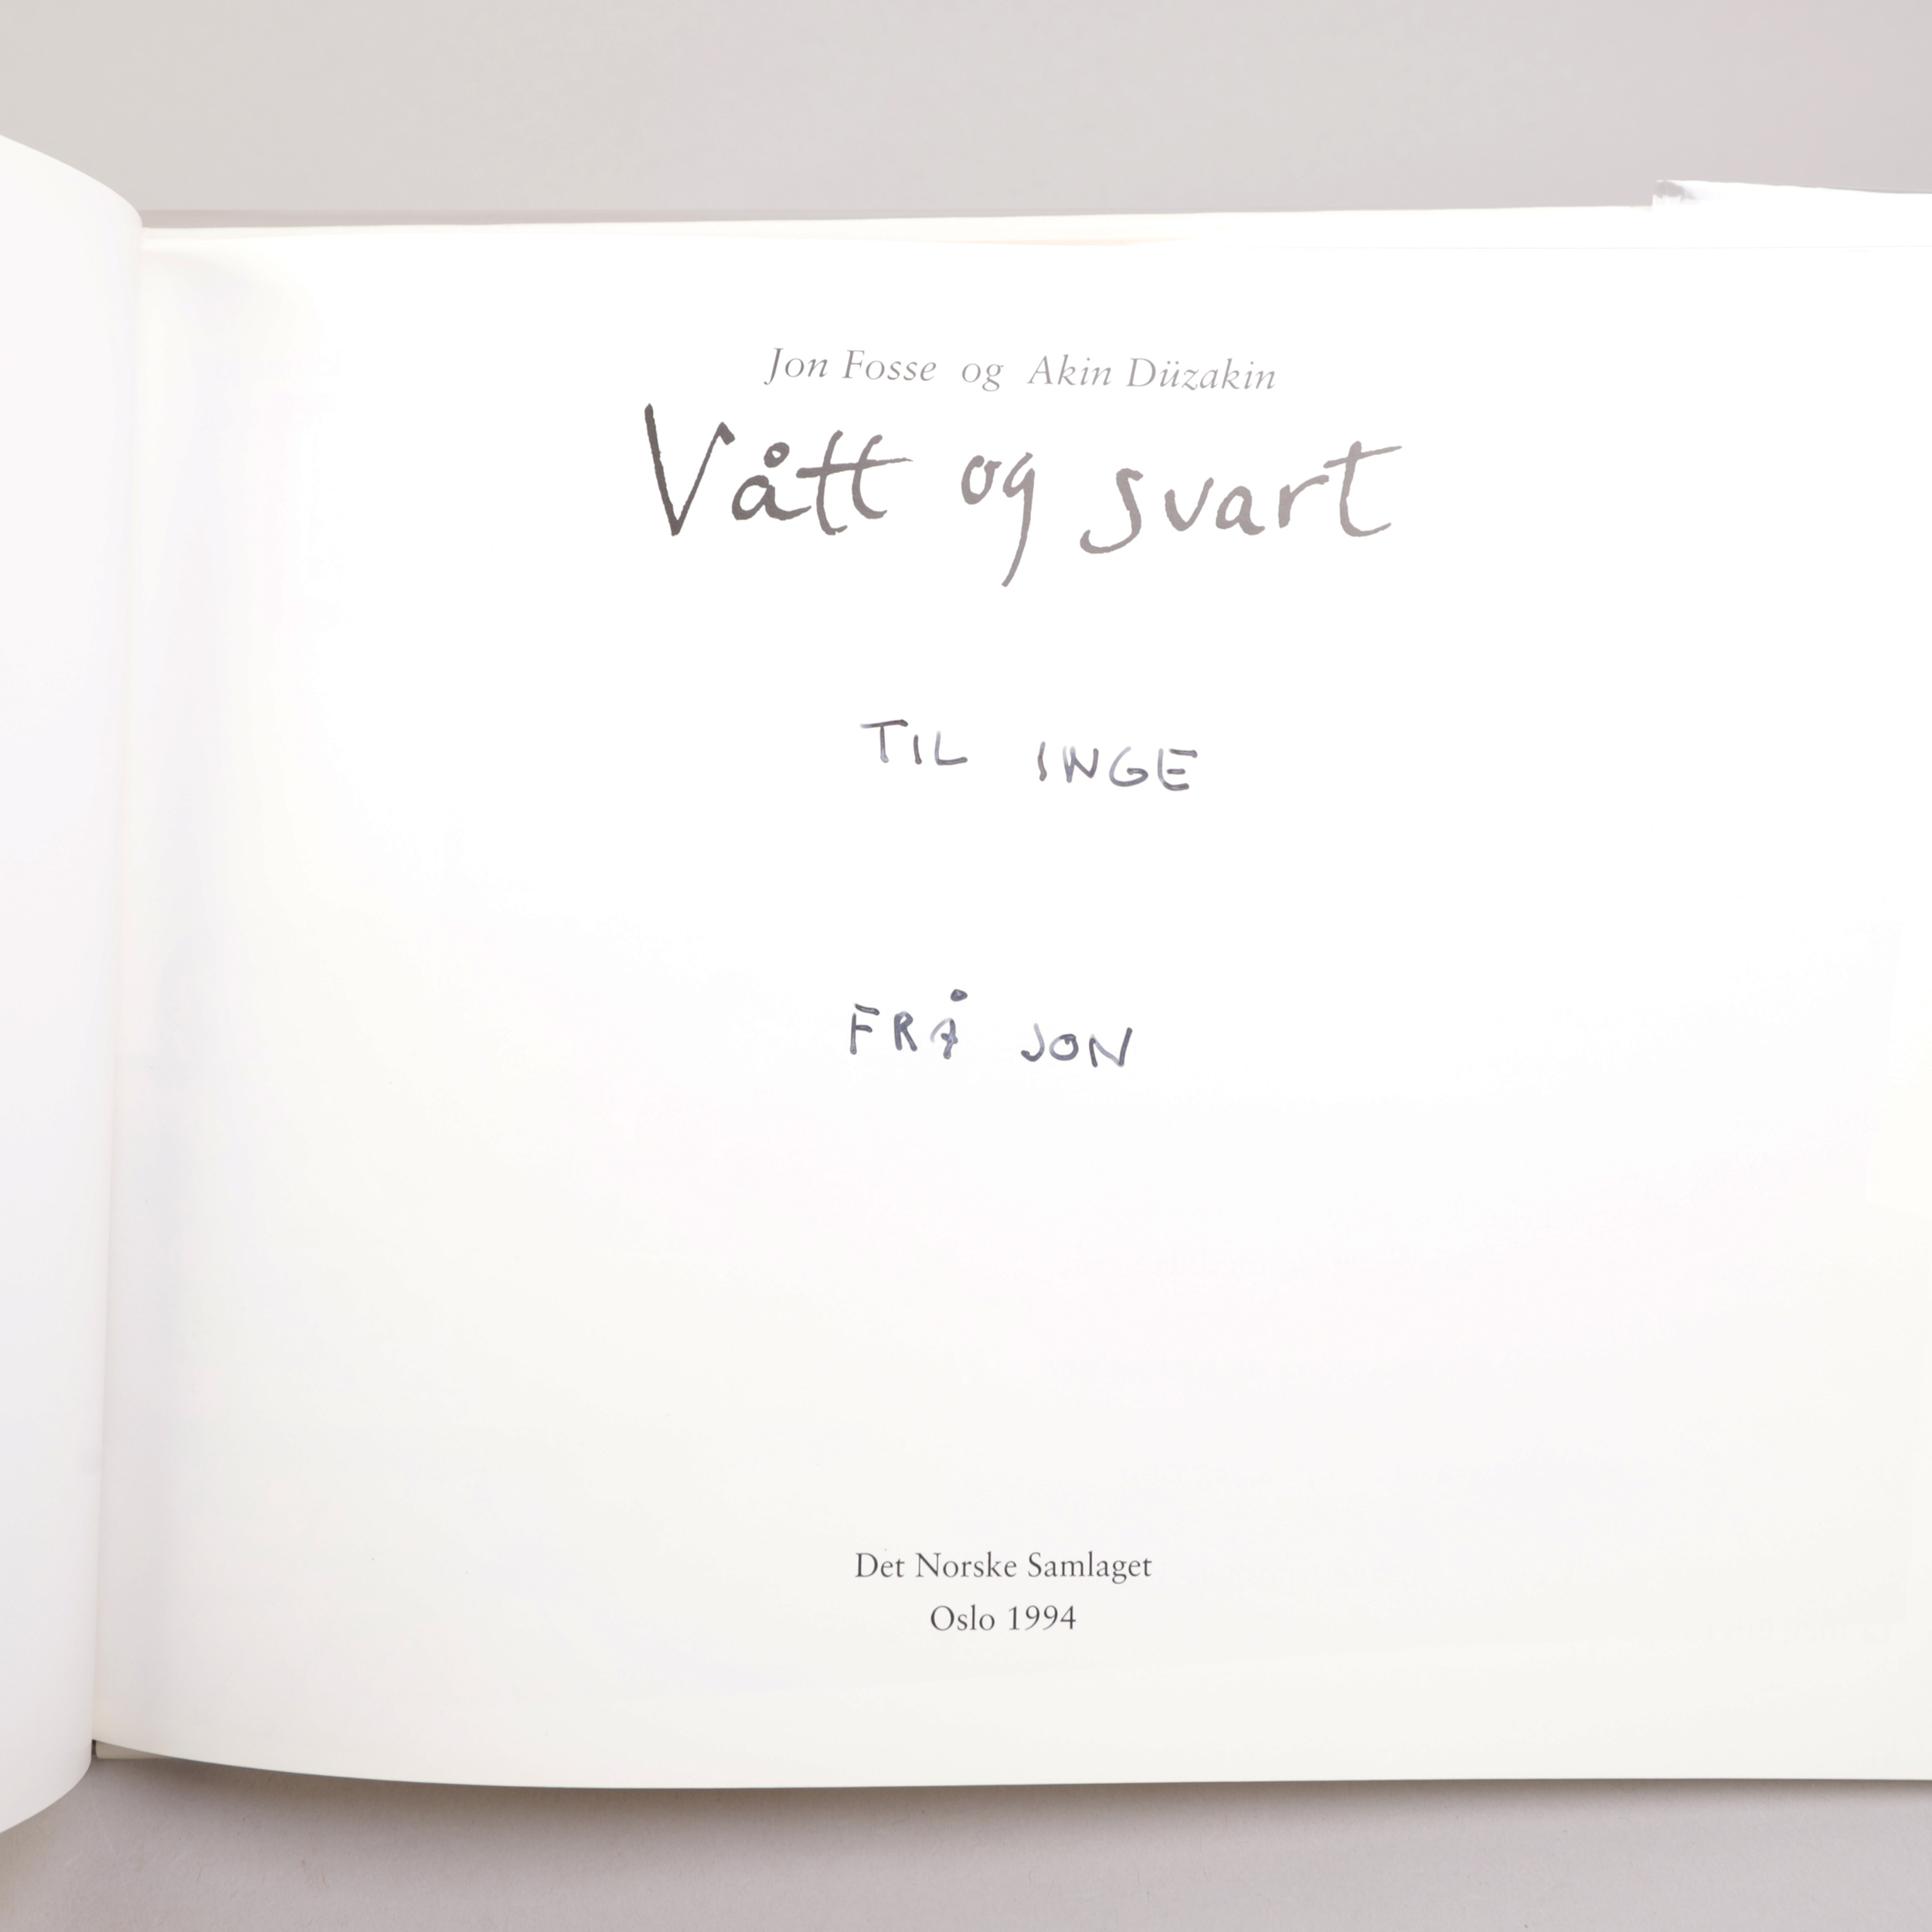 Jon Fosse og Akin Düzakin
Vått og svart
TIL INGE
FRÅ JON
Det Norske Samlaget
Oslo 1994